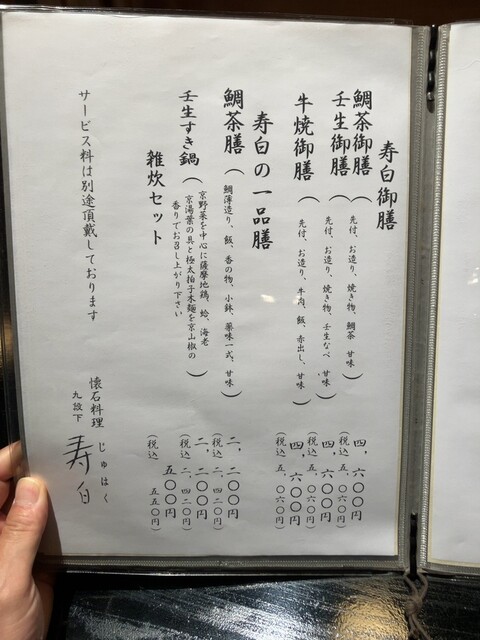 寿白御膳
鯛茶御膳（先付、お造り、焼き物、鯛茶 甘味） 四、六〇〇円
（税込 五、〇六〇円）
壬生御膳（先付、お造り、焼き物、壬生なべ 甘味） 四、六〇〇円
（税込 五、〇六〇円）
牛焼御膳（先付、お造り、牛肉、飯、赤出し、甘味） 四、六〇〇円
（税込 五、〇六〇円）
寿白の一品膳
鯛茶膳（鯛薄造り、飯、香の物、小鉢、薬味一式、甘味） 二、二〇〇円
（税込 二、四二〇円）
壬生すき鍋（京野菜を中心に薩摩地鶏、蛤、海老
京湯葉の具と極太拍子木麺を京山椒の
香りでお召し上がり下さい） 二、二〇〇円
（税込 二、四二〇円）
雑炊セット 五〇〇円
（税込 五五〇円）
サービス料は別途頂戴しております
懐石料理
九段下
じゅはく
寿白